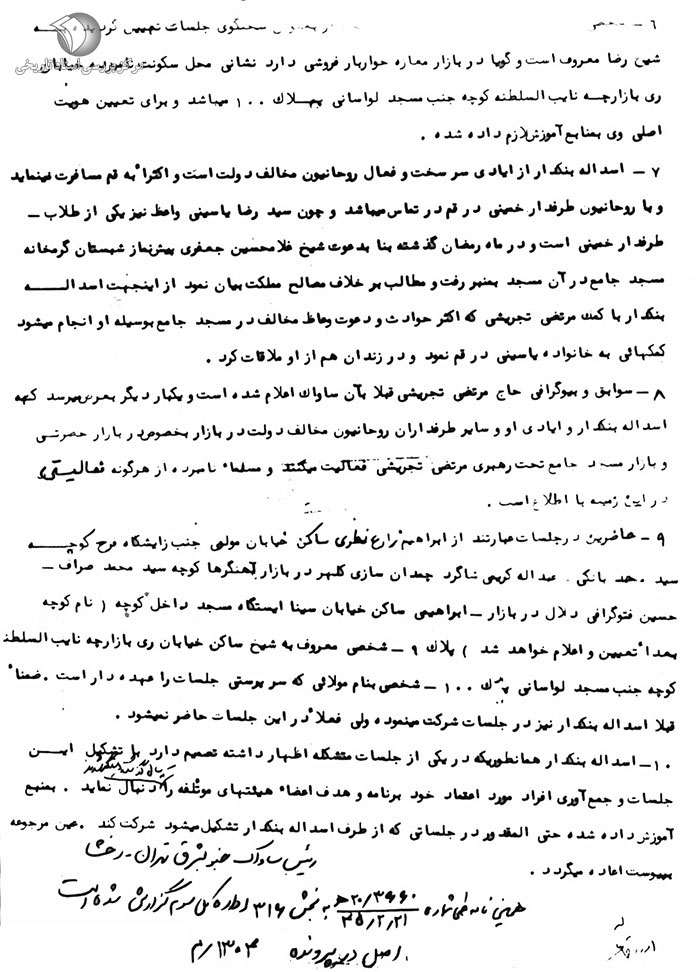 مرکز بررسی اسناد تاریخی
۶ – سخنگوی جلسات تعیین
شیخ رضا معروف است و گویا در بازار مغازه خواربار فروشی دارد نشانی محل سکونت نامبرده خیابان
ری بازارچه نایب السلطنه کوچه جنب مسجد لواسانی پلاك ۱۰۰ میباشد و برای تعیین هویت
اصلی وی بمنابع آموزش لازم داده شده .
۷ – اسداله بنکدار از ایادی سرسخت و فعال روحانیون مخالف دولت است و اکثراً به قم مسافرت مینماید
و با روحانیون طرفدار خمینی در قم در تماس میباشد و چون سید رضا یاسینی واعظ نیز یکی از طلاب –
طرفدار خمینی است و در ماه رمضان گذشته بنا بدعوت شیخ غلامحسین جعفری پیش‌نماز شبستان گرمخانه
مسجد جامع در آن مسجد بمنبر رفت و مطالب بر خلاف مصالح مملکت بیان نمود از اینجهت اسداله
بنکدار با کمک مرتضی تجریشی که اکثر حوادث و دعوت وعاظ مخالف در مسجد جامع بوسیله او انجام میشود
کمکهائی به خانواده یاسینی در قم نمود و در زندان هم از او ملاقات کرد .
۸ – سوابق و بیوگرافی حاج مرتضی تجریشی قبلا بآن ساواك اعلام شده است و یکبار دیگر بعرض میرسد که
اسداله بنکدار و ایادی او و سایر طرفداران روحانیون مخالف دولت در بازار بخصوص در بازار حضرتی
و بازار مسجد جامع تحت رهبری مرتضی تجریشی فعالیت میکنند و مسلماً نامبرده از هرگونه فعالیتی
در این زمینه با اطلاع است .
۹ – حاضرین در جلسات عبارتند از ابراهیم زارع نطری ساکن خیابان مولوی جنب زایشگاه فرح کوچه
سید بانکی . عبداله کریمی شاگرد چمدان سازی گلپر در بازار آهنگرها کوچه سید محمد صراف –
حسین فتوگرافی دلال در بازار – ابراهیمی ساکن خیابان سینا ایستگاه مسجد داخل کوچه ( نام کوچه
بعداً تعیین و اعلام خواهد شد ) پلاك ۹ – شخصی معروف به شیخ ساکن خیابان ری بازارچه نایب السلطنه
کوچه جنب مسجد لواسانی پلاك ۱۰۰ – شخصی بنام مولائی که سرپرستی جلسات را عهده دار است . ضمناً
قبلا اسداله بنکدار نیز در جلسات شرکت مینموده ولی فعلاً در این جلسات حاضر نمیشود .
۱۰ – اسداله بنکدار همانطوریکه در یکی از جلسات متشکله اظهار داشته تصمیم دارد با تشکیل این
جلسات و جمع آوری افراد مورد اعتماد خود برنامه و هدف اعضاء هیئتهای موتلفه را دنبال نماید . بمنبع
آموزش داده شده حتی المقدور در جلساتی که از طرف اسداله بنکدار تشکیل میشود شرکت کند . عین مرجوعه
بپیوست اعاده میگردد .
رئیس ساواك جنوبشرق تهران – رخشا
همچنین نامه طی شماره ۲۰/۳۹۶۶۰ ه ۳۵/۲/۲۱ به بخش ۳۱۶ اداره کل سوم گزارش شده است
اصل در پرونده ۱۳۰۴/م